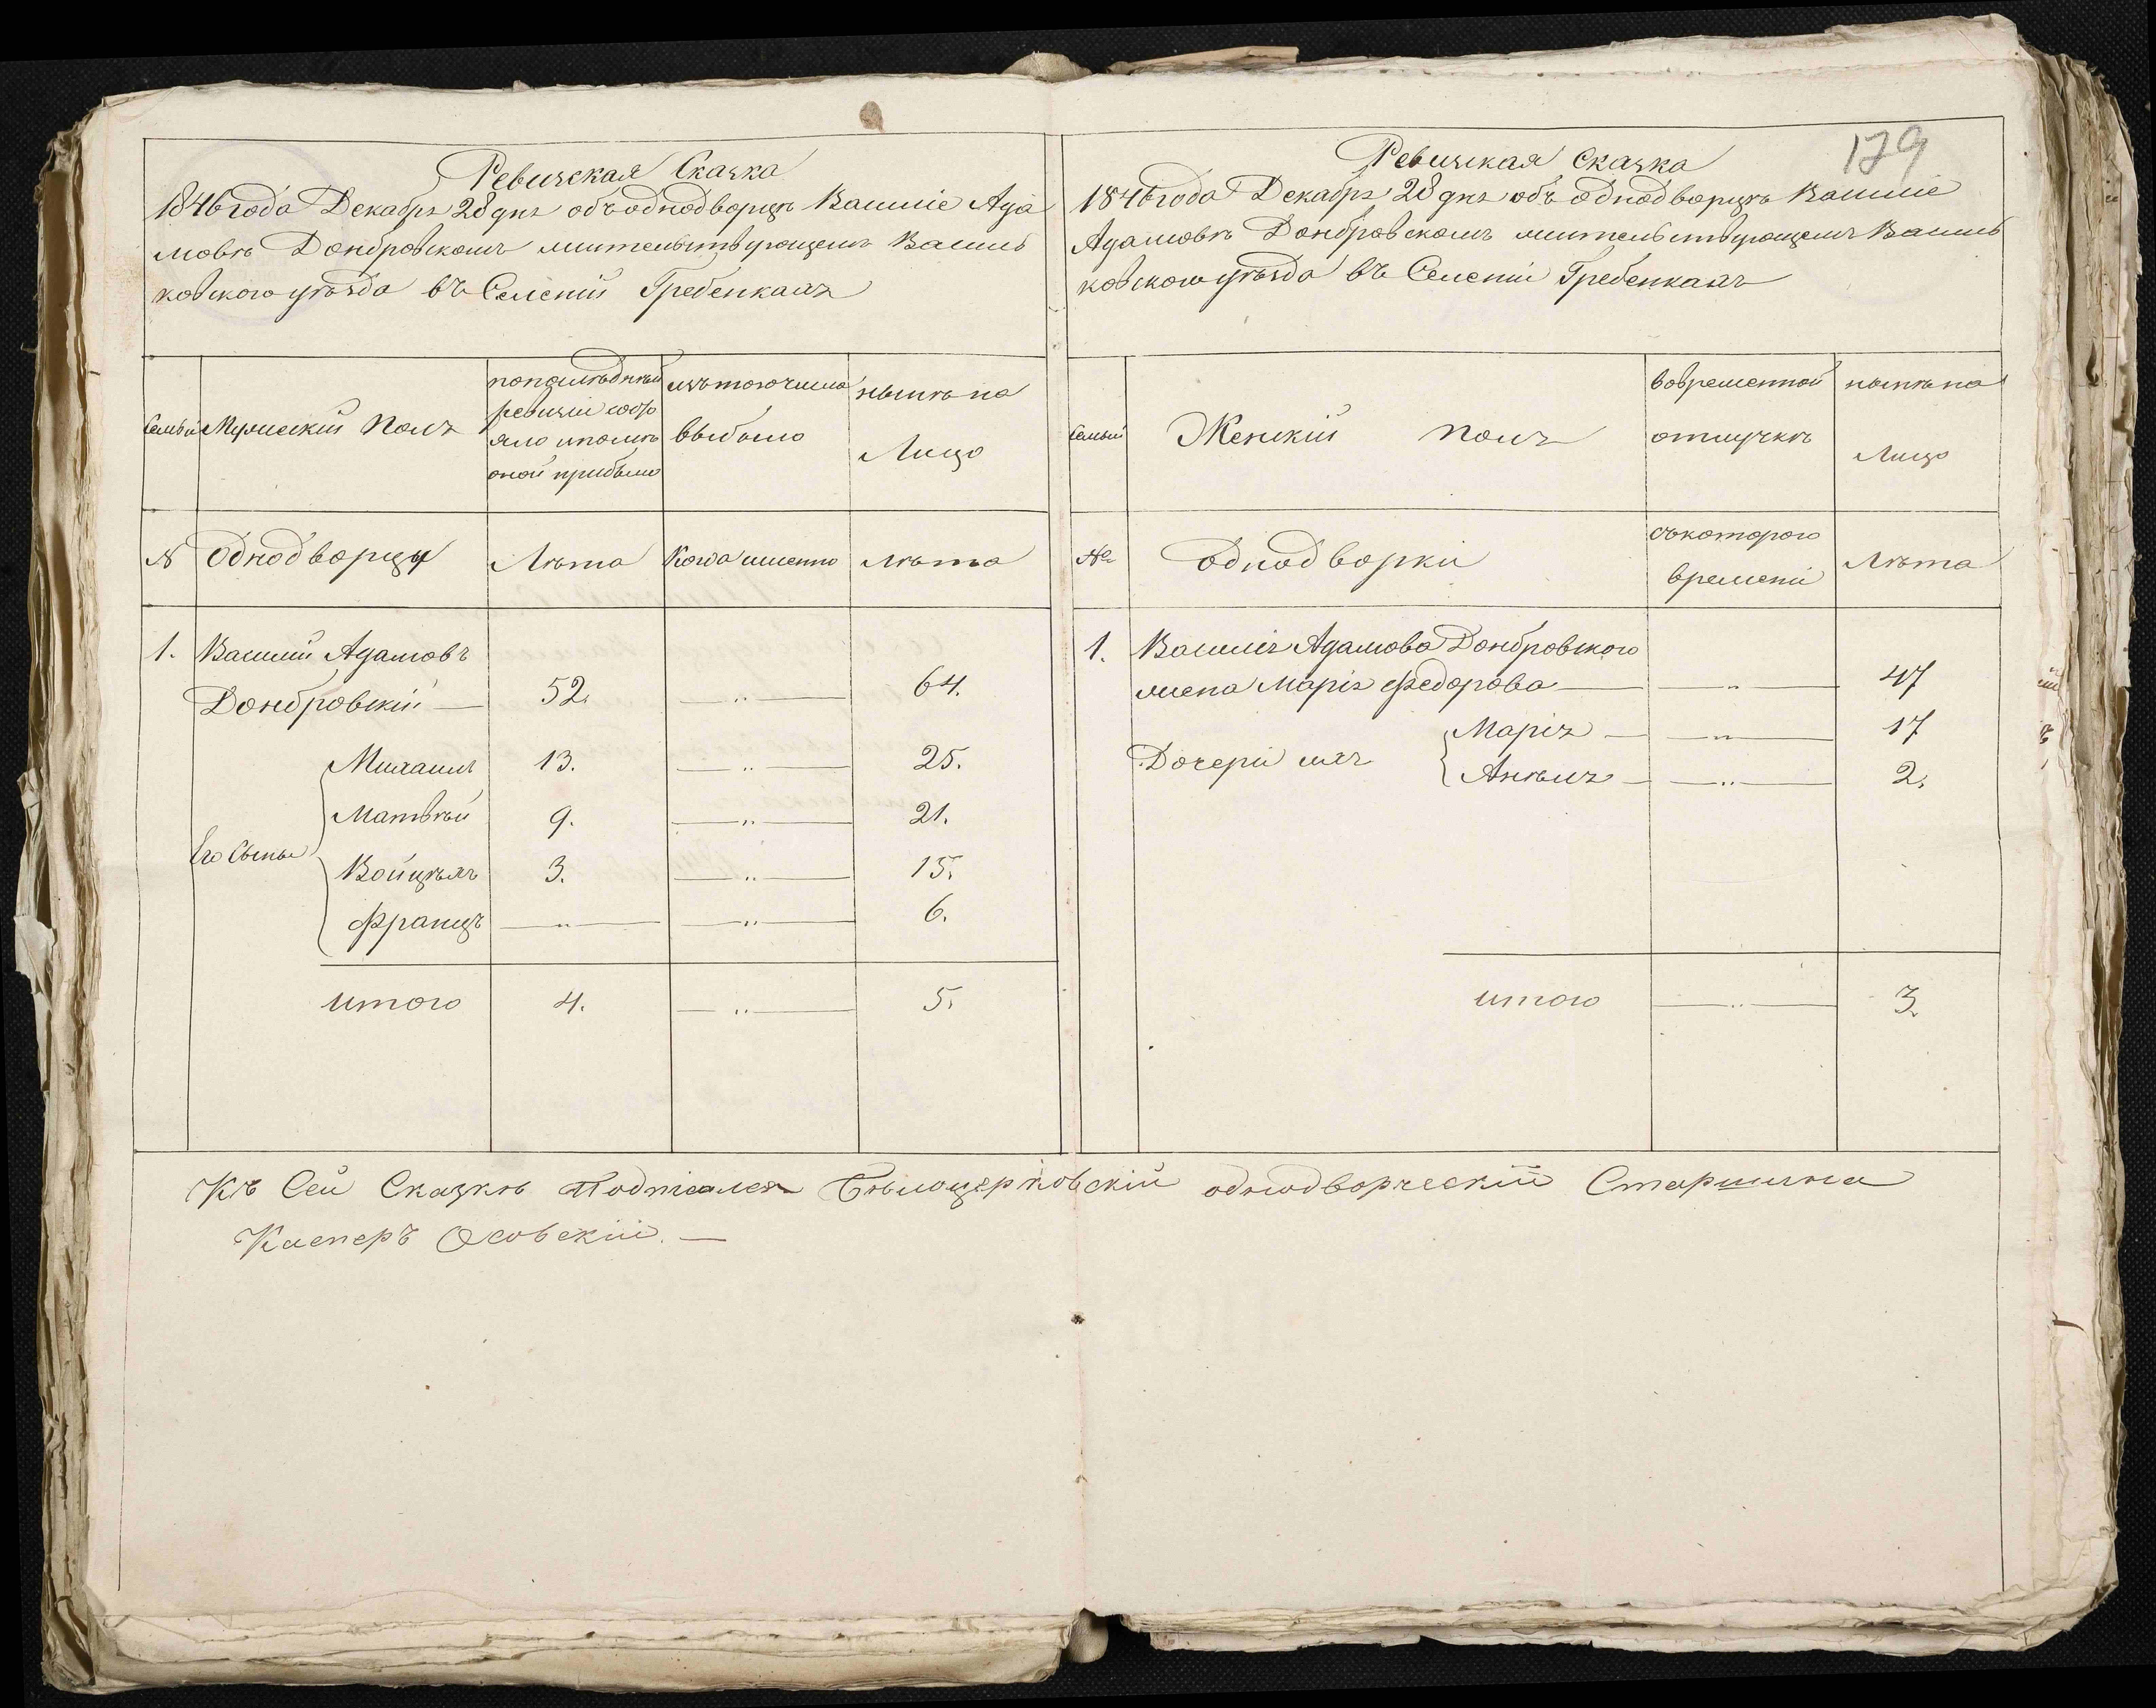 Ревизская Сказка
1846 года Декабря 28 дня объ однодворцѣ Василіе Ада
мовѣ Домбровскомъ жительствующемъ Василь
ковского уѣзда въ Селеніи Гребенкахъ
Семьи
Мужеский Полъ
попослѣдней
ревизіи состо
яло ипослѣ
оной прибыло
изътогочисла
выбыло
нынѣ на
Лицо
№
Однодворцы
Лѣта
Когда именно
лѣта
1. Василий Адамовъ
Домбровскій — 52. —„— 64.
Его Сыны
Михаилъ 13. —„— 25.
Матвѣй 9. —„— 21.
Войцѣхъ 3. —„— 15.
Францъ —„— —„— 6.
итого 4. —„— 5.
179
Ревизская Сказка
1846 года Декабря 28 дня объ однодворцѣ Василіе
Адамовѣ Домбровскомъ жительствующемъ Василь
ковского уѣзда въ Селеніи Гребенкахъ
Семьи
Женскій полъ
вовременной
отлучкѣ
нынѣ на
Лицо
№
Однодворки
съкоторого
времени
Лѣта
1. Василія Адамова Домбровского
жена Марія Федорова — —„— 47
Дочери ихъ
Марія — —„— 17
Анѣля — —„— 2.
итого —„— 3.
Къ Сей Сказкѣ Подписался Бѣлоцерковскій однодворческій Старшина
Касперъ Осовскій. —